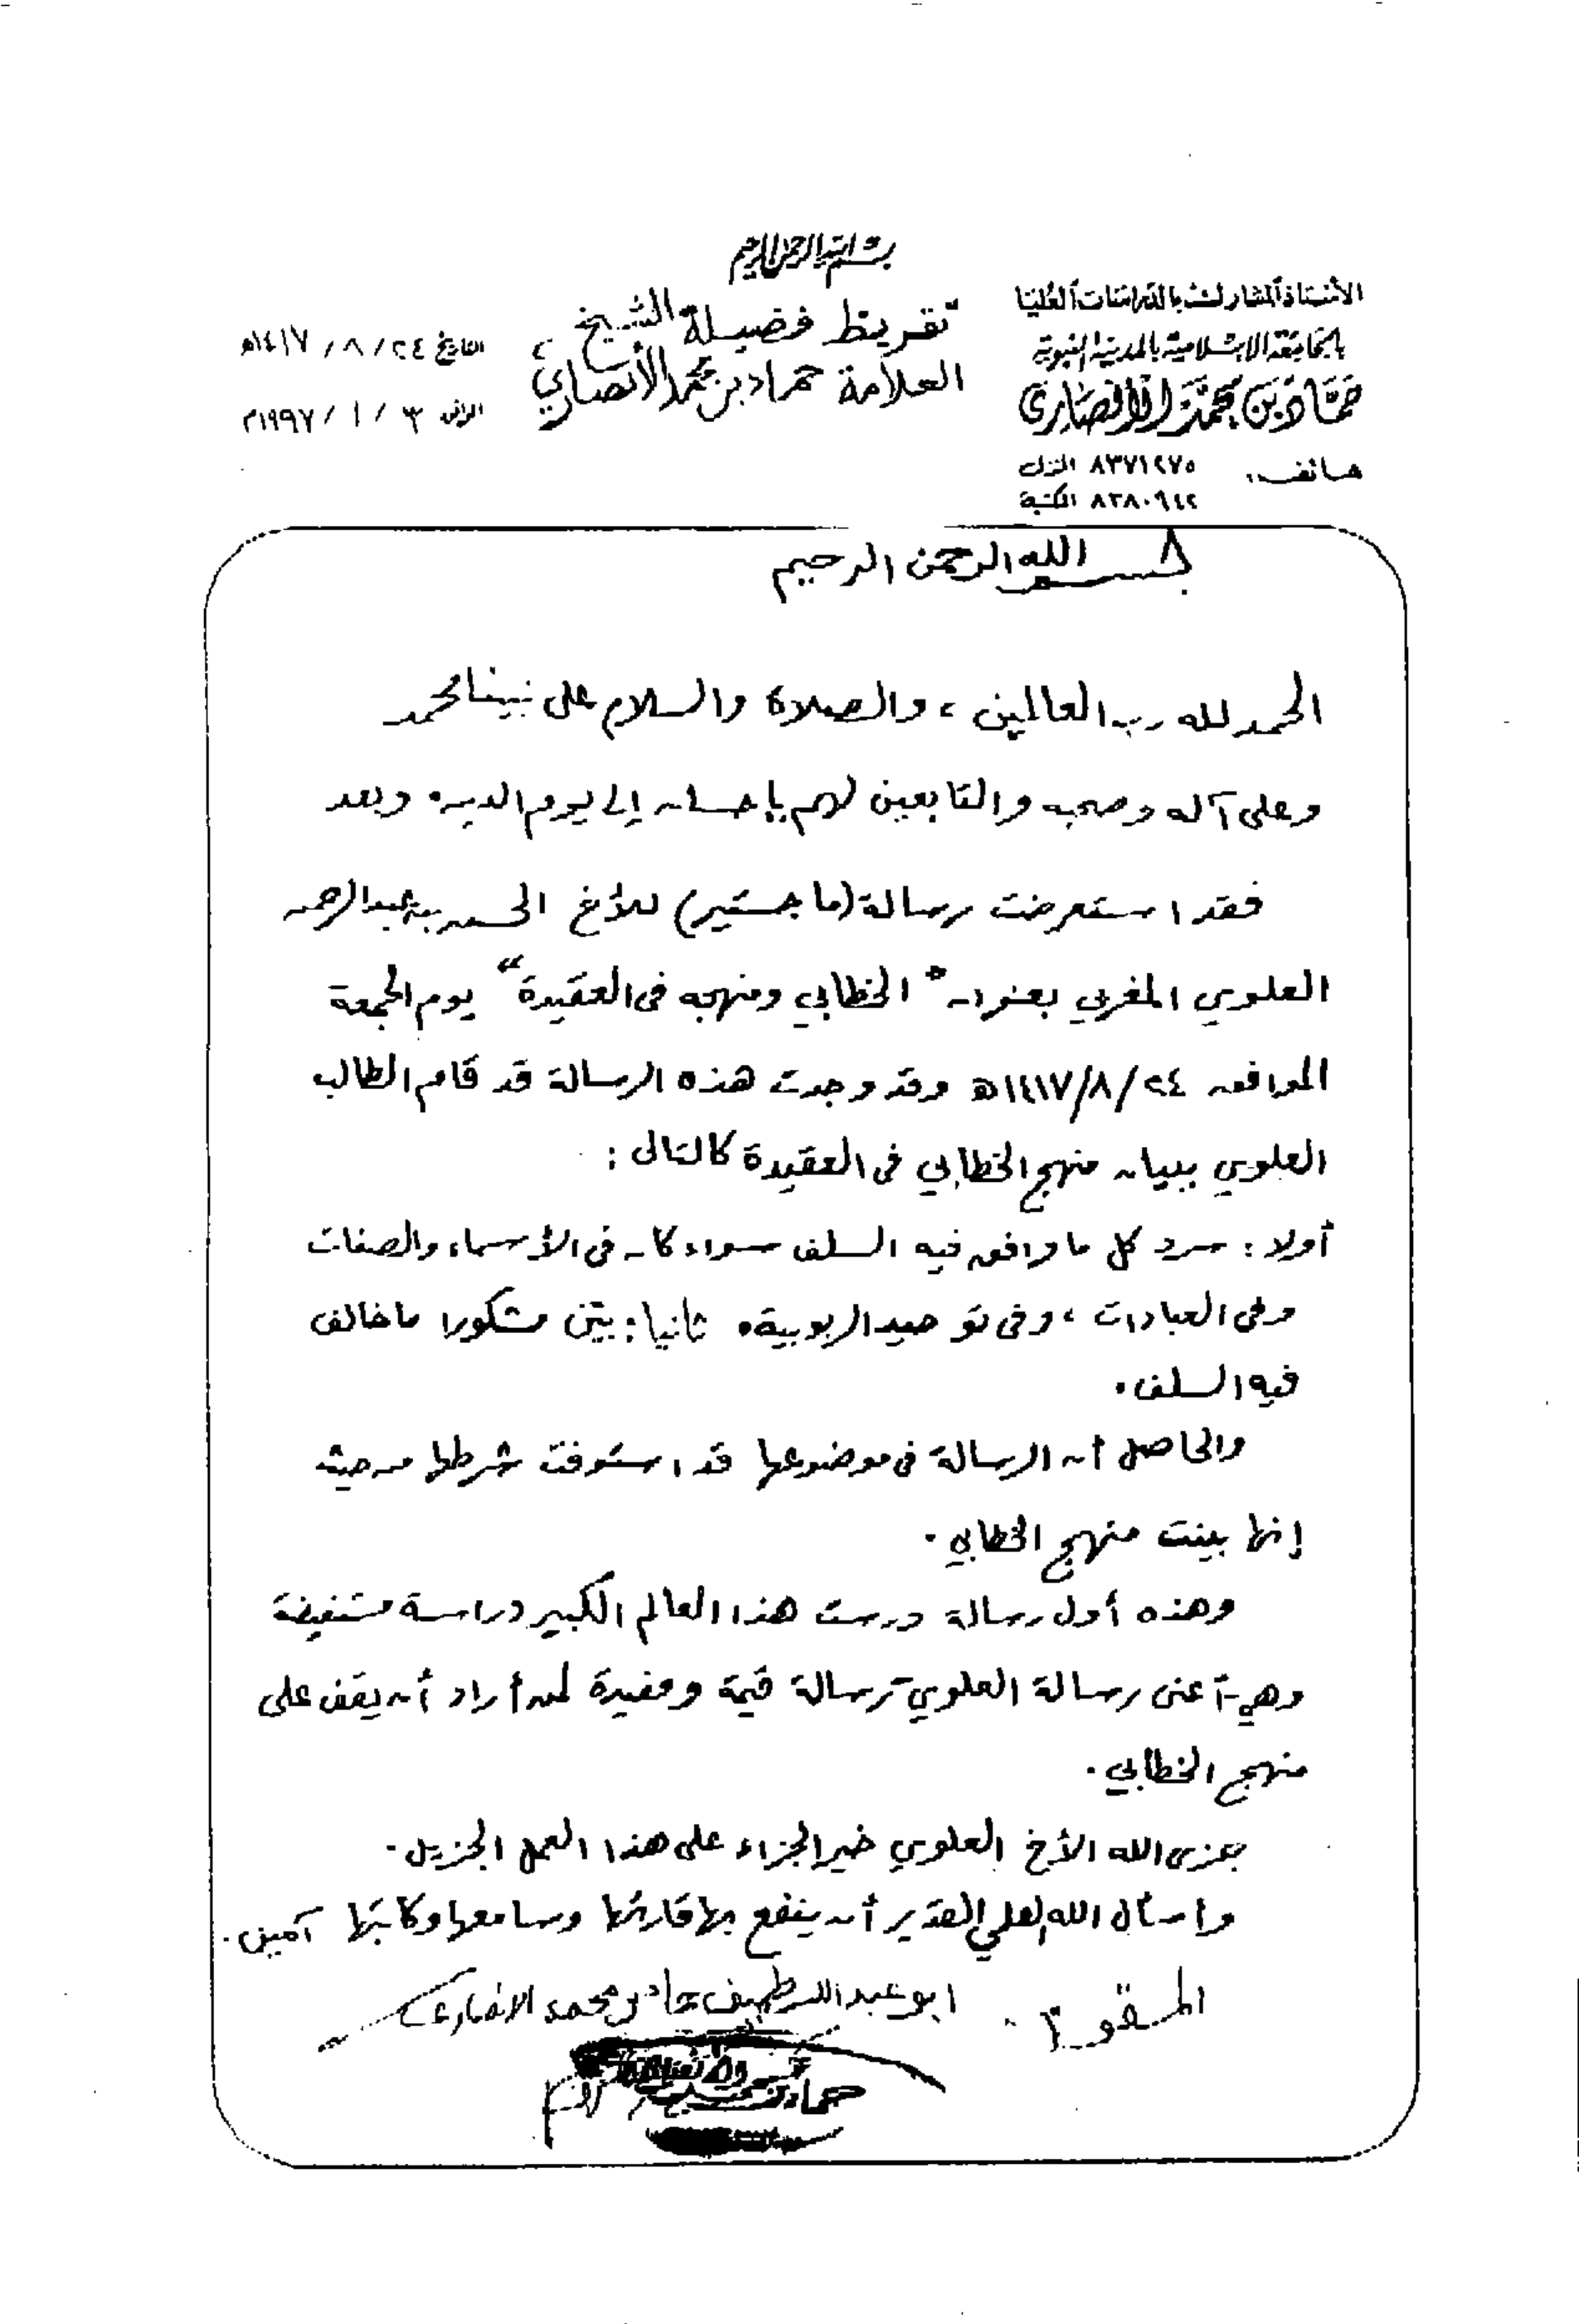 بسم الله الرحمن الرحيم
الأستاذ المشارك بالدراسات العليا
بالجامعة الإسلامية بالمدينة النبوية
حماد بن محمد الأنصاري
هاتف: ٨٣٧١٢٧٥ المنزل
٨٢٨٠٩٤٢ المكتبة
تقريظ فضيلة الشيخ
العلامة حماد بن محمد الأنصاري
التاريخ ٢٤ / ٨ / ١٤١٧هـ
الموافق ٣ / ١ / ١٩٩٧م
بسم الله الرحمن الرحيم
الحمد لله رب العالمين، والصلاة والسلام على نبينا محمد
وعلى آله وصحبه والتابعين لهم بإحسان إلى يوم الدين. وبعد
فقد استعرضت رسالة (ماجستير) للأخ الحسن بن عبدالرحمن
العلوي المغربي بعنوان "الخطابي ومنهجه في العقيدة" يوم الجمعة
الموافق ٢٤/٨/١٤١٧هـ وقد وجدت هذه الرسالة قد قام الطالب
العلوي ببيان منهج الخطابي في العقيدة كالتالى:
أولا: سرد كل ما وافق فيه السلف سواء كان في الأسماء والصفات
وفي العبادات، وفي توحيد الربوبية. ثانيا: بيّن مشكورا ما خالف
فيه السلف.
والحاصل أن الرسالة في موضوعها قد استوفت شرطها من حيث
إنها بينت منهج الخطابي.
وهذه أول رسالة درست هذا العالم الكبير دراسة مستفيضة
وهي-أعنى رسالة العلوي-رسالة قيمة ومفيدة لمن أراد أن يقف على
منهج الخطابي.
جزى الله الأخ العلوي خير الجزاء على هذا العمل الجزيل.
وأسأل الله العلي القدير أن ينفع بها قارئها وسامعها وكاتبها آمين.
ابو عبد اللطيف حماد بن محمد الانصاري